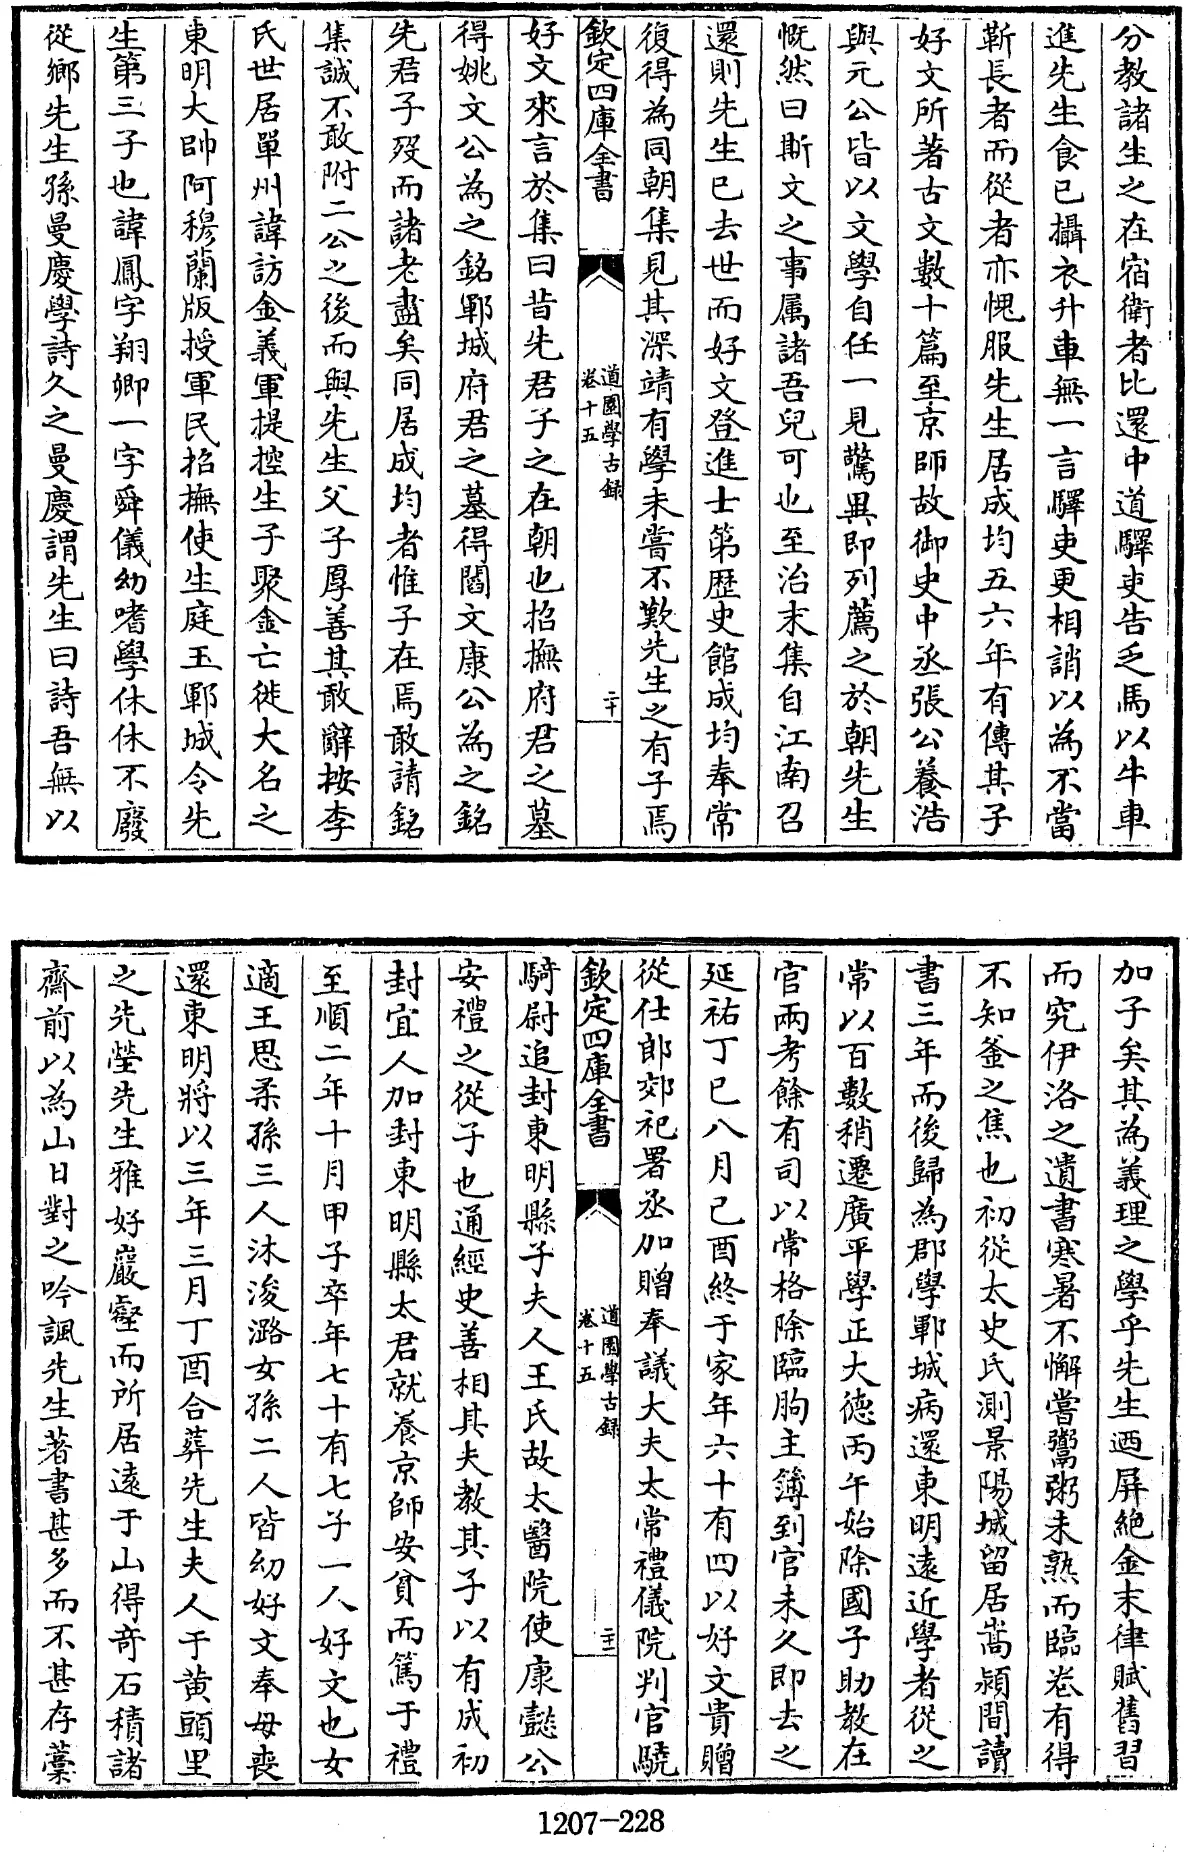 分教諸生之在宿衛者比還中道驛吏告乏馬以牛車
進先生食已攝衣升車無一言驛吏更相誚以為不當
靳長者而從者亦愧服先生居成均五六年有傳其子
好文所著古文數十篇至京師故御史中丞張公養浩
與元公皆以文學自任一見驚異即列薦之於朝先生
慨然曰斯文之事屬諸吾兒可也至治末集自江南召
還則先生已去世而好文登進士第歷史館成均奉常
復得為同朝集見其深靖有學未嘗不歎先生之有子焉
欽定四庫全書
道園學古録
卷十五
二十
好文來言於集曰昔先君子之在朝也招撫府君之墓
得姚文公為之銘鄆城府君之墓得閻文康公為之銘
先君子歿而諸老盡矣同居成均者惟子在焉敢請銘
集誠不敢附二公之後而與先生父子厚善其敢辭按李
氏世居單州諱訪金義軍提控生子聚金亡徙大名之
東明大帥阿穆蘭版授軍民招撫使生庭玉鄆城令先
生第三子也諱鳳字翔卿一字舜儀幼嗜學休休不廢
從鄉先生孫曼慶學詩久之曼慶謂先生曰詩吾無以
加子矣其為義理之學乎先生迺屏絶金末律賦舊習
而究伊洛之遺書寒暑不懈嘗鬻粥未熟而臨卷有得
不知釜之焦也初從太史氏測景陽城留居嵩潁間讀
書三年而後歸為郡學鄆城病還東明遠近學者從之
常以百數稍遷廣平學正大德丙午始除國子助教在
官兩考餘有司以常格除臨朐主簿到官未久即去之
延祐丁巳八月己酉終于家年六十有四以好文貴贈
從仕郎郊祀署丞加贈奉議大夫太常禮儀院判官驍
欽定四庫全書
道園學古録
卷十五
二十一
騎尉追封東明縣子夫人王氏故太醫院使康懿公
安禮之從子也通經史善相其夫教其子以有成初
封宜人加封東明縣太君就養京師安貧而篤于禮
至順二年十月甲子卒年七十有七子一人好文也女
適王思柔孫三人沐浚潞女孫二人皆幼好文奉母喪
還東明將以三年三月丁酉合葬先生夫人于黄頭里
之先塋先生雅好巖壑而所居遠于山得竒石積諸
齋前以為山日對之吟諷先生著書甚多而不甚存藁
1207-228